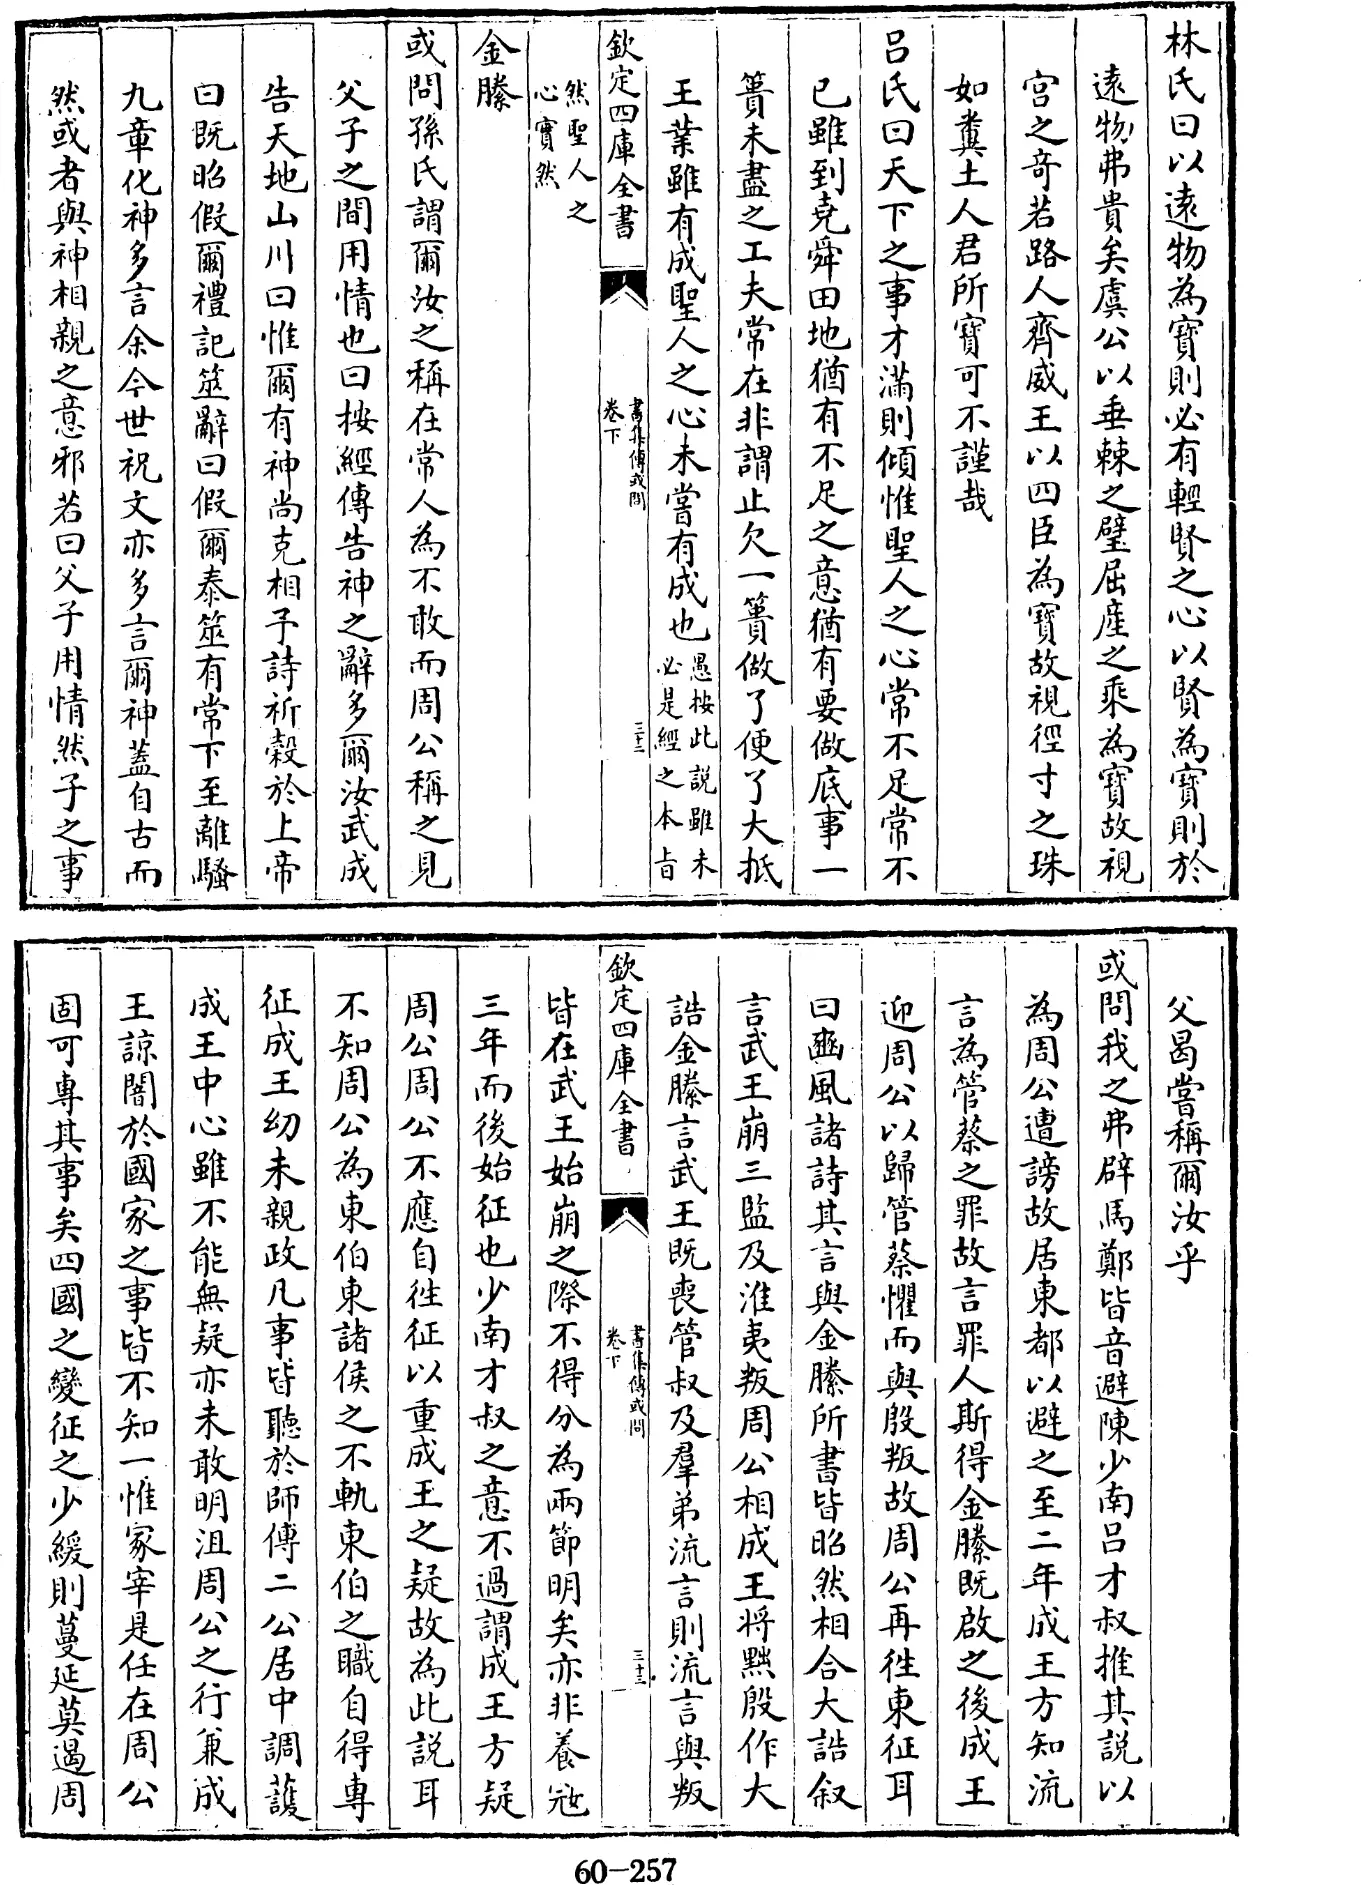 林氏曰以遠物為寳則必有輕賢之心以賢為寳則於
遠物弗貴矣虞公以垂棘之璧屈産之乘為寳故視
宫之竒若路人齊威王以四臣為寳故視徑寸之珠
如糞土人君所寳可不謹哉
吕氏曰天下之事才滿則傾惟聖人之心常不足常不
已雖到堯舜田地猶有不足之意猶有要做底事一
簣未盡之工夫常在非謂止欠一簣做了便了大抵
王業雖有成聖人之心未嘗有成也愚按此説雖未必是經之本旨
欽定四庫全書
書集傳或問
卷下
三十二
然聖人之心實然
金縢
或問孫氏謂爾汝之稱在常人為不敢而周公稱之見
父子之間用情也曰按經傳告神之辭多爾汝武成
告天地山川曰惟爾有神尚克相予詩祈榖於上帝
曰既昭假爾禮記筮辭曰假爾泰筮有常下至離騷
九章化神多言余今世祝文亦多言爾神蓋自古而
然或者與神相親之意邪若曰父子用情然子之事
父曷嘗稱爾汝乎
或問我之弗辟馬鄭皆音避陳少南吕才叔推其説以
為周公遭謗故居東都以避之至二年成王方知流
言為管蔡之罪故言罪人斯得金縢既啟之後成王
迎周公以歸管蔡懼而與殷叛故周公再徃東征耳
曰豳風諸詩其言與金縢所書皆昭然相合大誥叙
言武王崩三監及淮夷叛周公相成王将黜殷作大
誥金縢言武王既喪管叔及羣弟流言則流言與叛
欽定四庫全書
書集傳或問
卷下
三十三
皆在武王始崩之際不得分為兩節明矣亦非養冦
三年而後始征也少南才叔之意不過謂成王方疑
周公周公不應自徃征以重成王之疑故為此説耳
不知周公為東伯東諸侯之不軌東伯之職自得專
征成王幼未親政凡事皆聽於師傅二公居中調䕶
成王中心雖不能無疑亦未敢明沮周公之行兼成
王諒闇於國家之事皆不知一惟冡宰是任在周公
固可專其事矣四國之變征之少緩則蔓延莫遏周
60-257